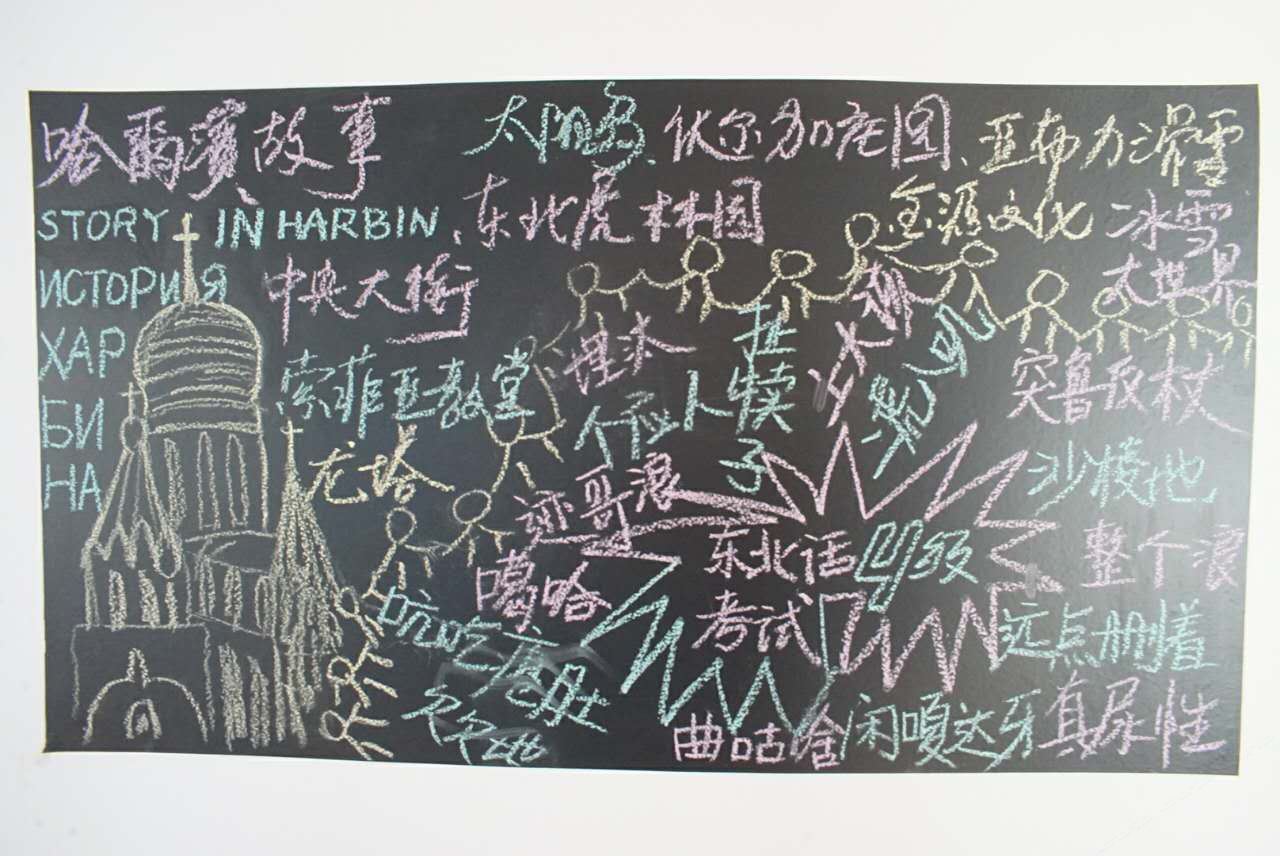 哈爾濱故事
太阳岛、伏尔加庄园、亚布力滑雪
STORY IN HARBIN
、东北虎林园
金源文化
冰雪
大世界
ИСТОРИЯ
ХАР
БИ
НА
中央大街
索菲亚教堂
龙塔
埋汰
个应
卜
扯
犊
子
突鲁反杖
沙楞地
整个浪
远点删着
真尿性
迹哥浪
噶哈
东北话四级
考试
吭吃瘪肚
曲咕啥
闲嘎达牙